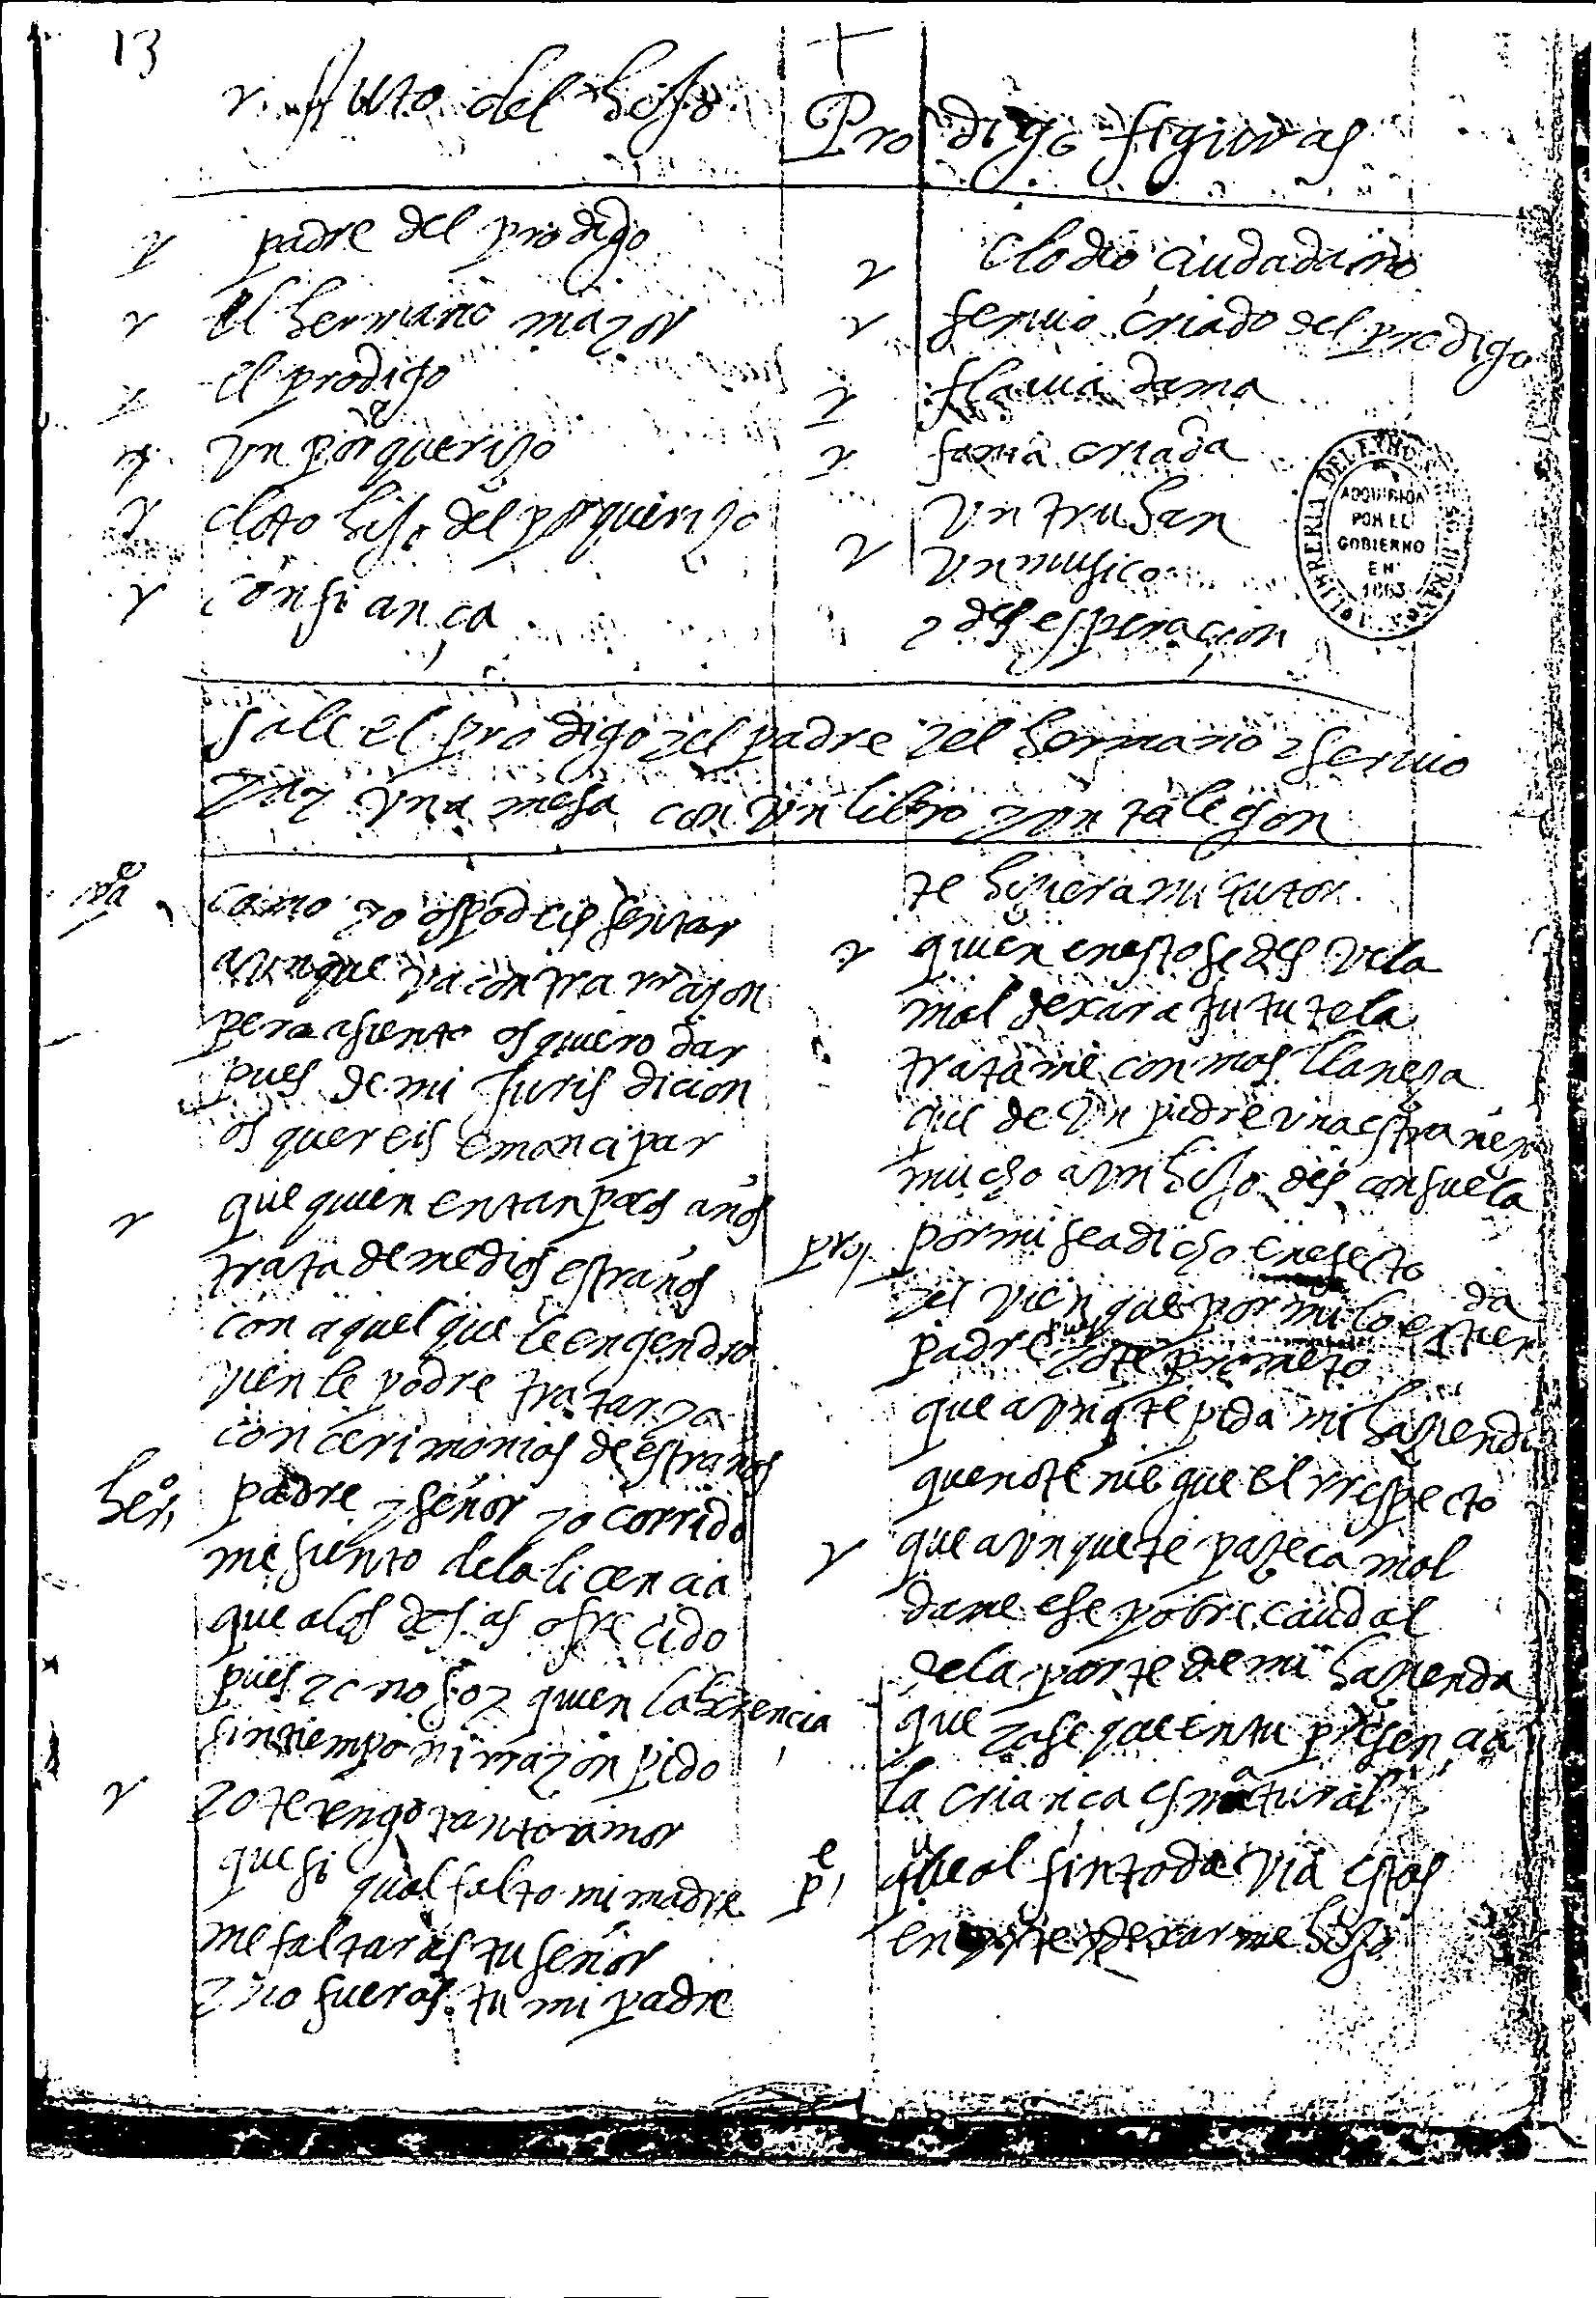 13
Auto del hijo Prodigo figuras
padre del prodigo
el hermano mayor
el prodigo
vn porquerizo
cloto hijo del porquerizo
confiança
clodio ciudadano
seruio criado del prodigo
flauia dama
fania criada
vn truhan
vn musico
y desesperaçion
ADQUIRIDA
POR EL
GOBIERNO
EN
1863
sale el prodigo y el padre y el hermano y seruio
y ay vna mesa con vn libro y vn talegon
como yo os podeis sentar
avnque va contra rraзon
pero asiento os quiero dar
pues de mi juris dicion
os quereis emancipar
que quien en tan pocos años
trata de medios estraños
con aquel que le engendro
vien le podre tratar yo
con cerimonias de estraños
her.º padre y señor yo corrido
me siento de la licencia
que a los dos as ofrecido
pues yo no soy quien la herencia
sin tiempo ni rrazon pido
yo te tengo tanto amor
que si qual falto mi madre
me faltaras tu señor
y no fueras tu mi padre
te hiziera mi tutor
quien en esto se des vela
mal dexara su tutela
tratame con mas llaneza
que de vn padre vna estrañeza
mucho a vn hijo des consuela
pro, por mi se a dicho en efecto
y es vien que por mi lo entienda
padre yo te prometo
que avnq te pida mi hazienda
que no te niegue el rrespecto
que avnque te pareca mal
dame ese pobre caudal
de la parte de mi hazienda
que yo se que en tu presencia
la criança es natural
pe, que al fin todavia estas
en dexarme hijo